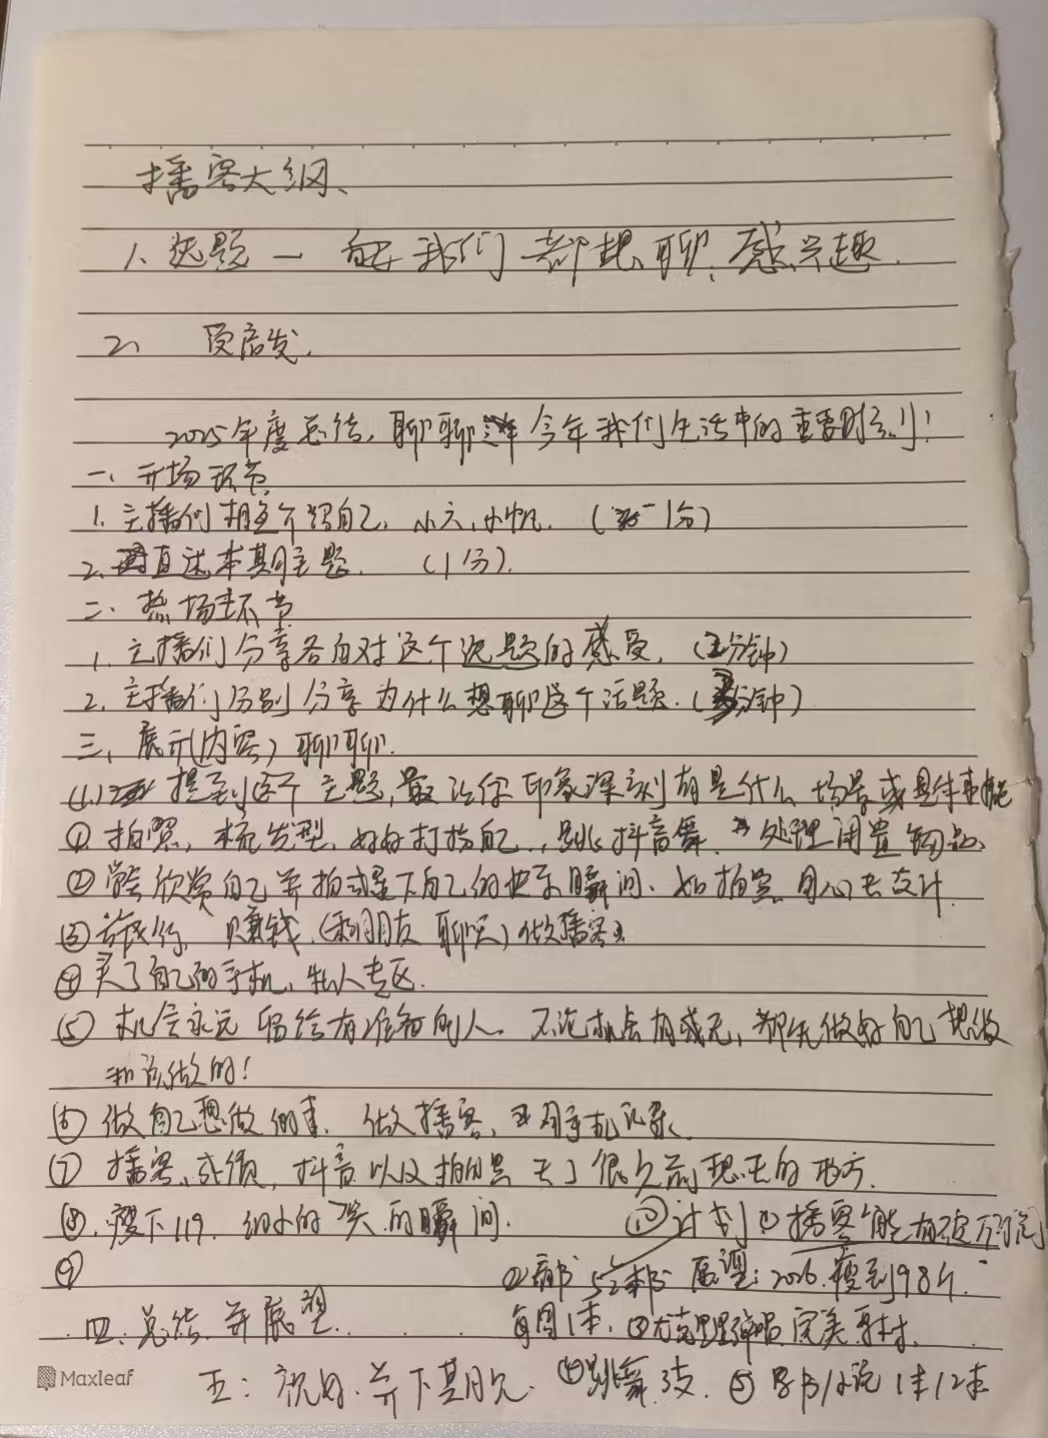 播客大纲、
1、选题一 能 我们都想聊、感兴趣.
2、 受启发.
2025年度总结,聊聊 今年我们生活中的重要时刻!
一、开场环节
1. 主播们相互介绍自己,小六,小帆. ( 1分)
2. 直述本期主题. (1分).
二、热场环节
1. 主播们分享各自对这个选题的感受. (2分钟)
2. 主播们分别分享为什么想聊这个话题.( 分钟)
三、展示(内容) 聊聊.
提到这个主题,最让你印象深刻的是什么场景或具体事
① 拍照, 梳发型,好好打扮自己,跳抖音舞. 处理闲置物品、
② 能欣赏自己并拍 下自己的快乐瞬间、如拍 用心去设计.
③ 赚钱.(和朋友聊天)做播客
④ 买了自己的手机、私人专区.
⑤ 机会永远留给有准备的人. 不论机会有或无,都先做好自己想做
和该做的!
⑥ 做自己想做的事. 做播客, 用手机记录.
⑦ 播客、 抖音以及拍 去了很久前想去的地方.
⑧. 瘦下119. 细小的 的瞬间. ⑩计划①播客能有 万订阅
⑨ ② 52本书 展望:2026.瘦到98斤.
四、总结、并展望. 每周1本. ③尤克里里弹唱 完美身材.
Maxleaf 五:祝好、并下期见. ④跳舞3支. ⑤ 写书/小说1本/2本